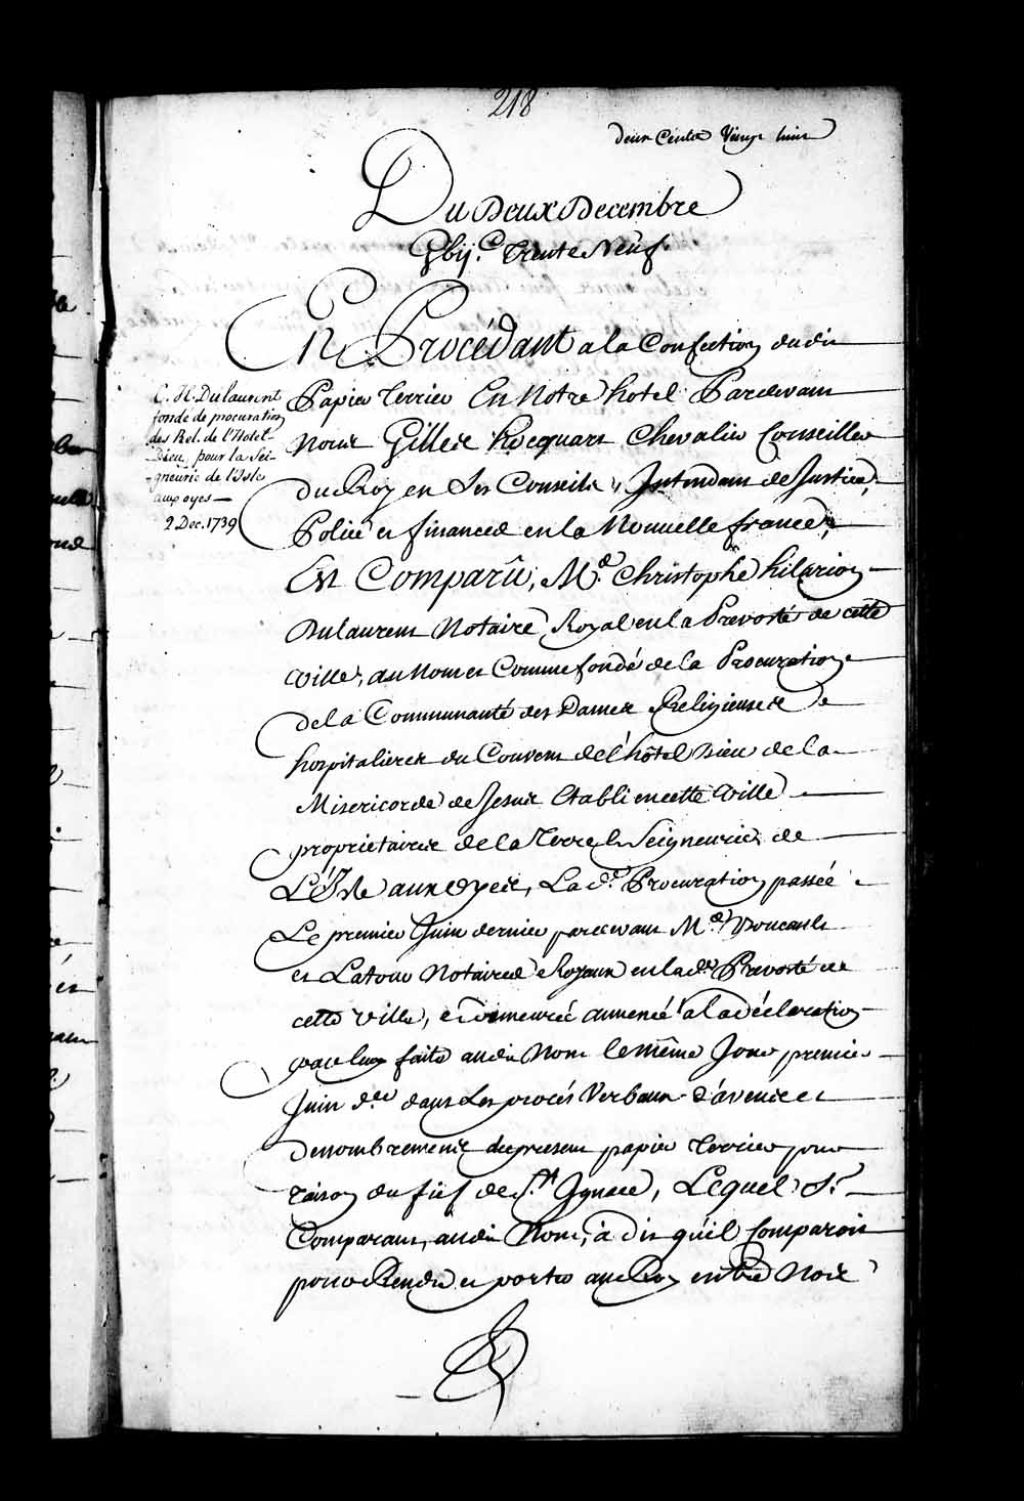 218
deux Cents Vingt huit
Du Deux Decembre
Gbij.C Trente Neuf
En Procédant a la Confection dudit
Papier Terrier En Notre hotel Pardevant
Nous Gilles hocquart Chevalier Conseiller
Du Roy en Ses Conseils, Intendant de Justice,
Police et finances en la Nouvelle france,
Est Comparû, Me. Christophe hilarion
Dulaurent Notaire Royal en la Prevosté de cette
ville, au Nom et Comme fondé de la Procuration
de la Communauté des Dames Religieuses
hospitalieres du Couvent de l'hôtel Dieu de la
Misericorde de Jesus Etabli en cette ville
proprietaires de la Terre et Seigneurie de
L'Isle aux oyes, La de. Procuration passée
Le premier Juin dernier pardevant Me. Boucault
et Latour Notaires Royaux en lade. Prevosté de
cette ville, et demeurée annexée a la déclaration
par luy faite audit Nom le même Jour premier
Juin der. dans Les procés Verbaux d'aveues et
Denombrements du present papier Terrier pour
raison du fief de St. Ignace, Lequel Sr.
Comparant, audit Nom, a dit qu'il Comparoit
pour Rendre et porter au Roy entre Nos
C. H. Dulaurent
fondé de procuration
des Rel. de l'Hotel-
Dieu, pour la Sei-
-gneurie de l'Isle
aux oyes—
2 Dec. 1739